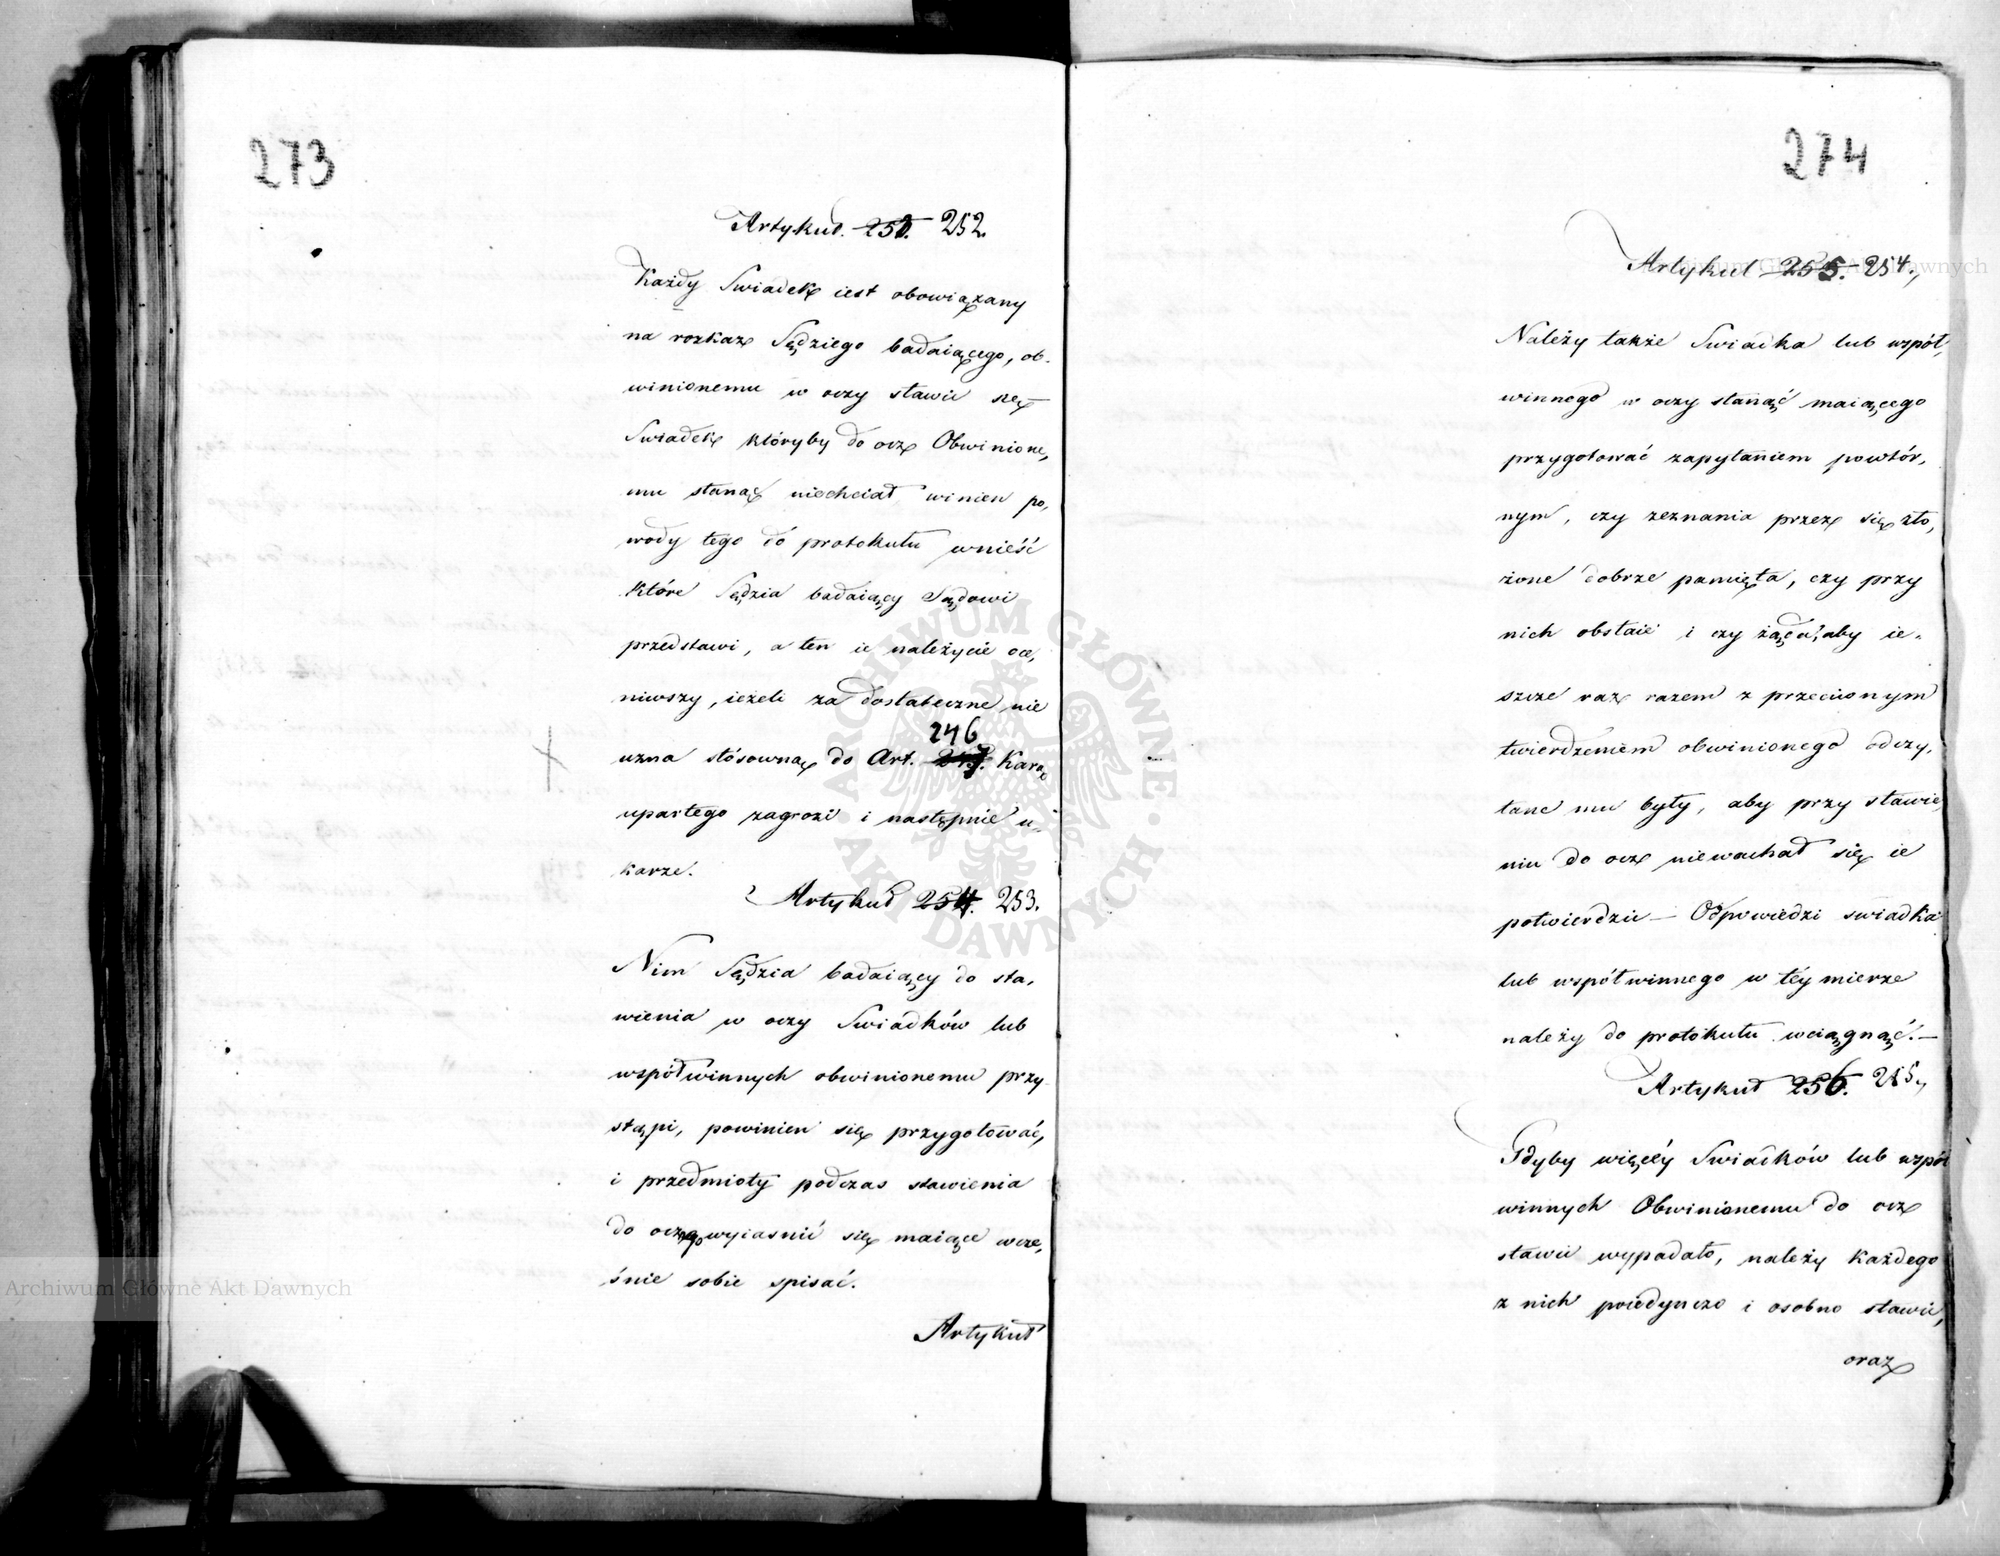 273
Artykuł. 253. 252.
Każdy Swiadek iest obowiązany
na rozkaz Sędziego badaiącego, ob-
winionemu w oczy stawić się
Swiadek któryby do ocz Obwinione,
mu stanąć niechciał winien po,
wody tego do protokułu wnieść
które Sędzia badaiący Sądowi
przedstawi, a ten ie należycie oce,
niwszy, ieżeli za dostateczne nie
246
uzna stósownę do Art. 247. Karą
upartego zagrozi i następnie u-
karze.
Artykuł 254. 253.
Nim Sędzia badaiący do sta,
wienia w oczy Swiadków lub
współwinnych obwinionemu przy
stąpi, powinien się przygotować,
i przedmioty podczas stawienia
do ocz wyiasnić się maiące wcze,
śnie sobie spisać.
Artykuł
274
Artykuł 255. 254.,
Należy także Swiadka lub współ,
winnego w oczy stanąć maiącego
przygotować zapytaniem powtór,
nym, czy zeznania przez się zło,
żone dobrze pamięta, czy przy
nich obstaie i czy żąda, aby ie-
szcze raz razem z przeciwnym
twierdzeniem obwinionego odczy,
tane mu były, aby przy stawie
niu do ocz niewachał się ie
potwierdzić — Odpowiedzi swiadka
lub współwinnego w téy mierze
należy do protokułu wciągnąć. —
Artykuł 256. 255.,
Gdyby więcéy Swiadków lub współ
winnych Obwinionemu do ocz
stawić wypadało, należy każdego
z nich poiedynczo i osobno stawić,
oraz
Archiwum Główne Akt Dawnych
Archiwum Główne Akt Dawnych
ARCHIWUM GŁÓWNE · AKT DAWNYCH ·